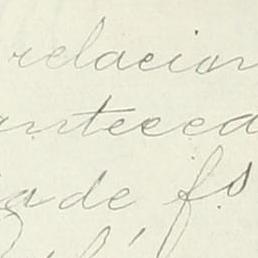 relacion
anteced
ade fs